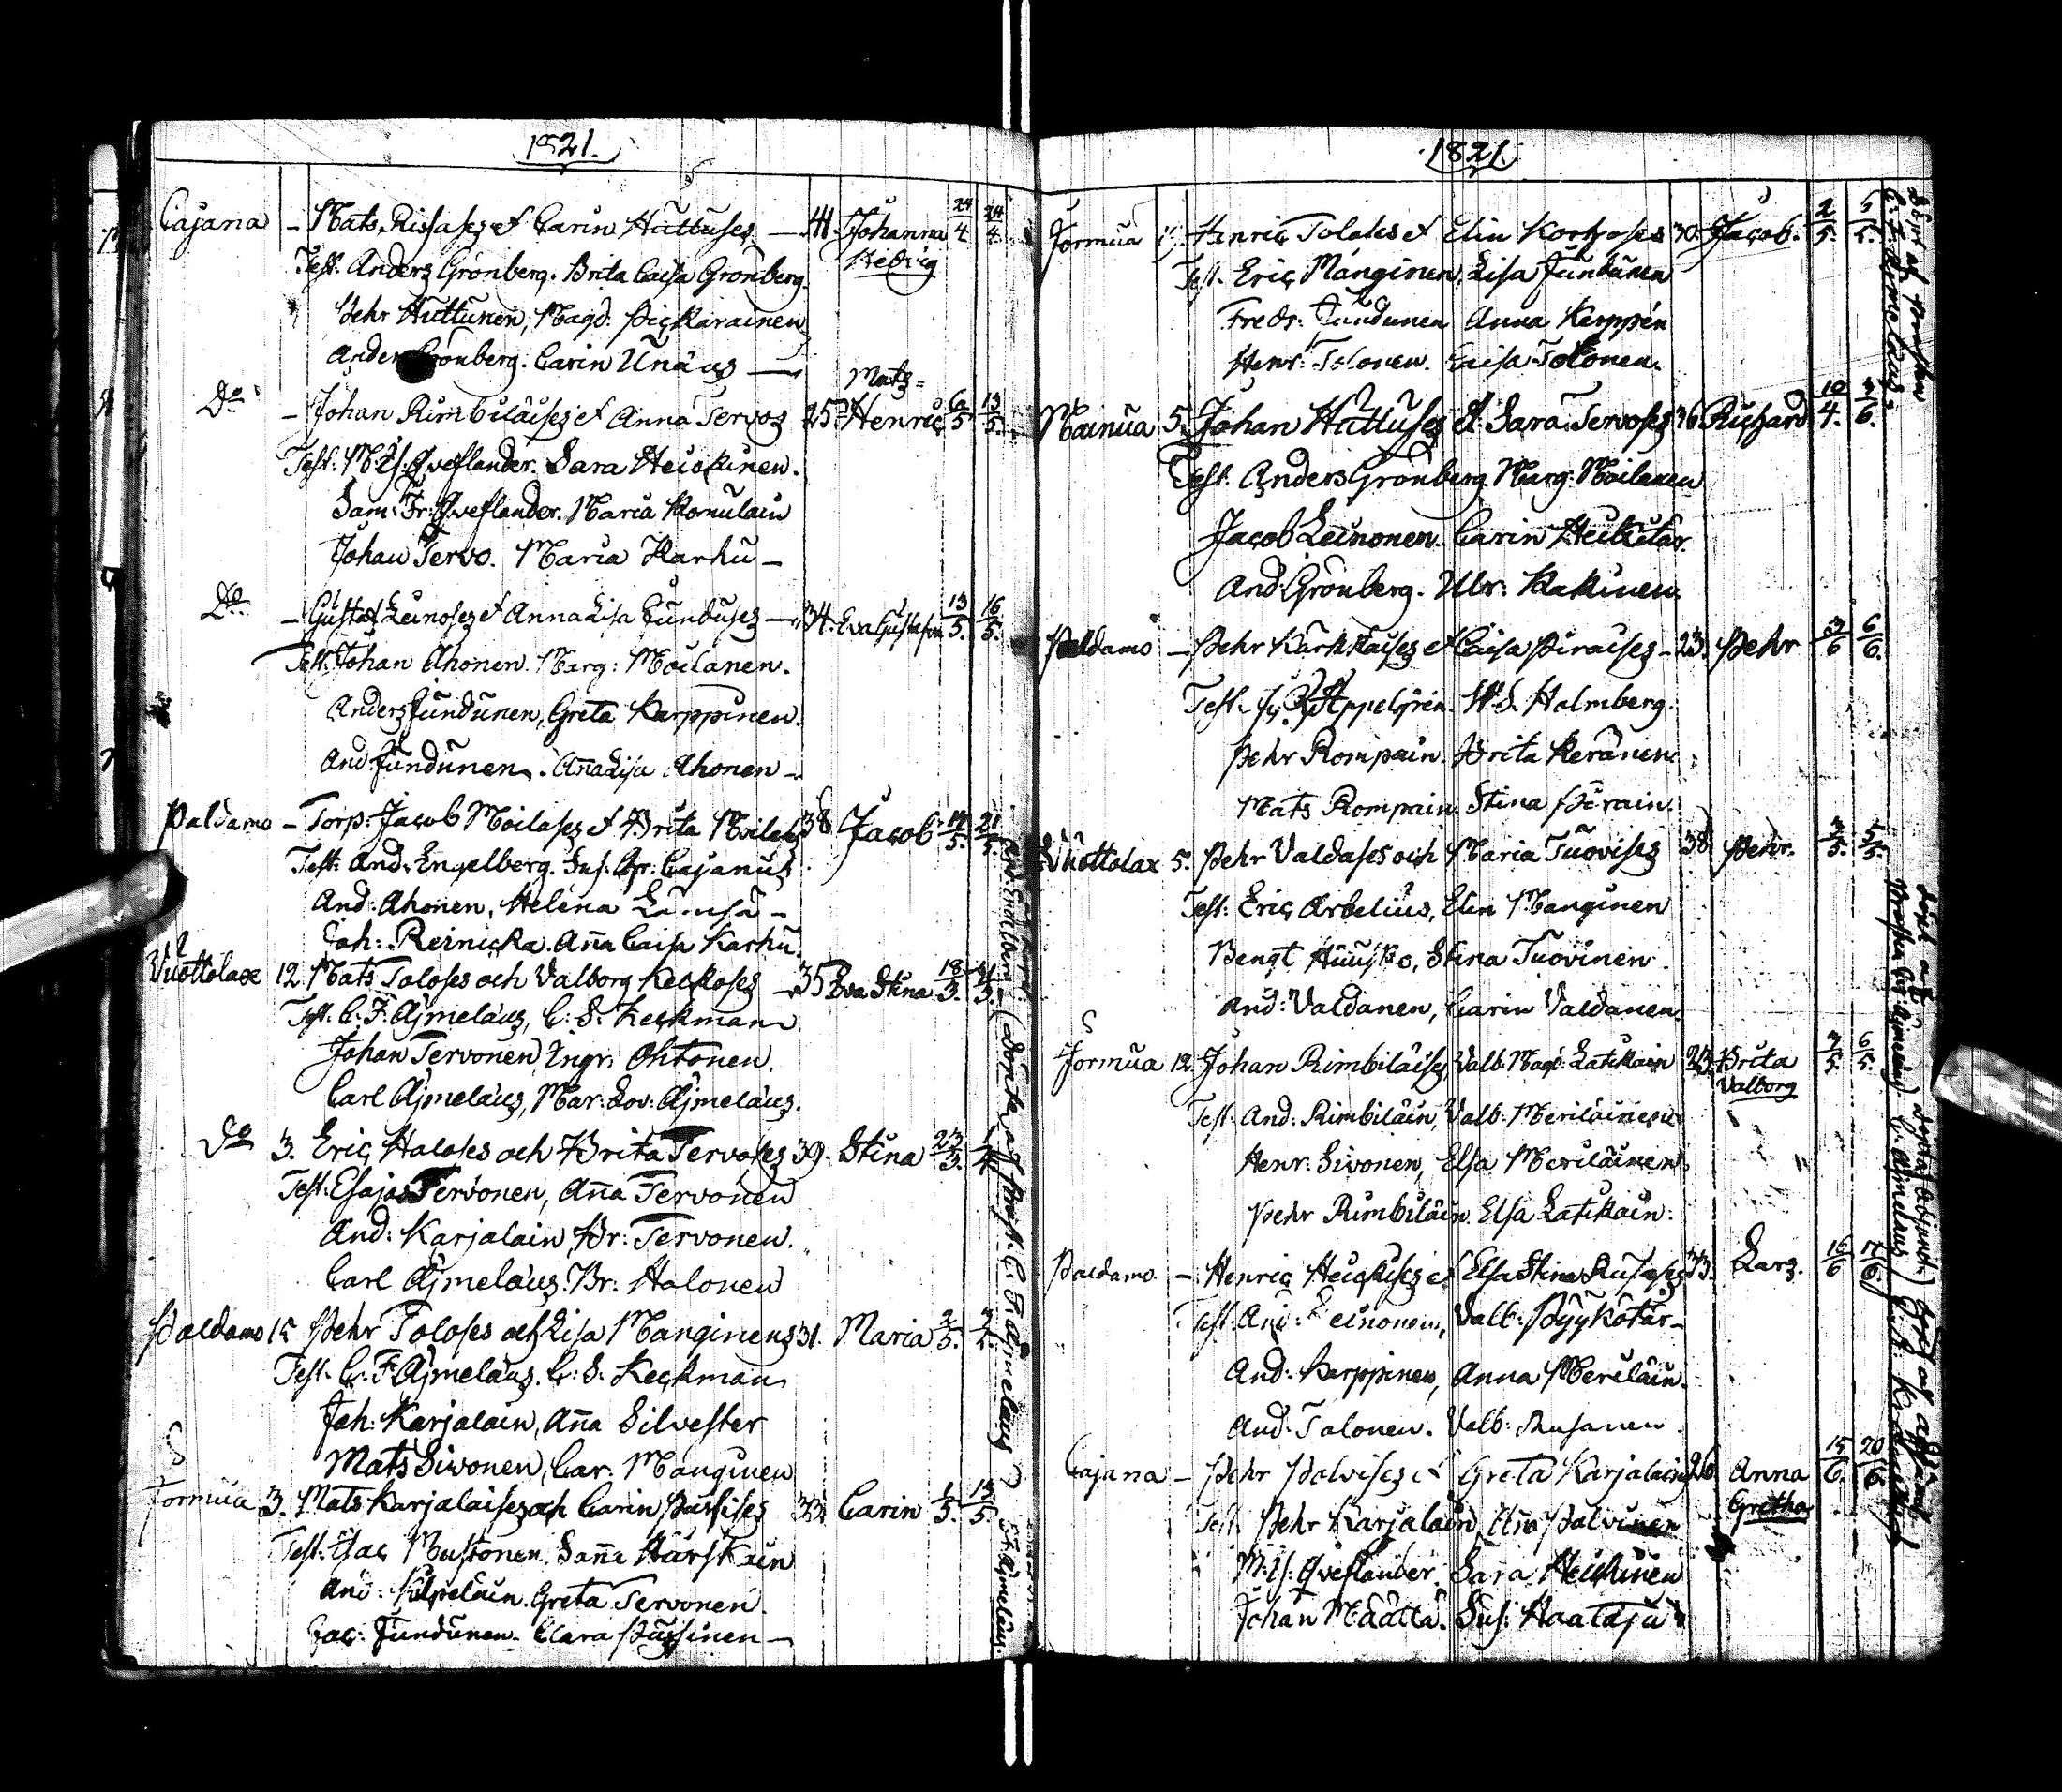 1821.
Cajana - Mats Rissases et Carin Huttuses - 41. Johanna 24/4 24/4
Hedvig
Test. Anders Grönberg. Brita Caisa Grönberg.
Pehr Huttunen, Magd: Pickarainen
Anders Grönberg. Carin Unäus -
Do - Johan Rimbiläises et Anna Tervos 25 Mats= 6/5 13/5.
Henric
Test: M: Is: Qveflander. Sara Heickinen.
Sam: Fr: Qveflander. Maria Komulain
Johan Tervo. Maria Karhu -
Do - Gustaf Leinoses et Anna Lisa Junduses - 34. Eva Gustafva 13/5. 16/5.
Test. Johan Ahonen. Marg: Moilanen.
Anders Jundunen, Greta Karppinen.
And: Jundunen. Aña Lisa Ahonen -
Paldamo - Torp: Jacob Moilases et Brita Moilas 38 Jacob 21/5.
Test: And: Engelberg. Sus. Cajanus
And: Ahonen, Helena
Joh: Reinicka. Aña Caisa Karhu.
Vuottolax 12. Mats Toloses och Valborg Keckoses - 35 Eva Stina 18/3.
Test. C. F. Ajmelæus, C: S: Keckman
Johan Tervonen, Ingr: Ohtonen.
Carl Ajmelæus, Mar: Lov: Ajmelæus.
Do 3. Eric Haloses och Brita Tervoses 39. Stina 23/3.
Test: Esajas Tervonen, Aña Tervonen
And: Karjalain, Br: Tervonen.
Carl Ajmelæus. Br: Halonen
Paldamo 15 Pehr Toloses och Lisa Manginens 31. Maria 2/5.
Test. C. F. Ajmelæus. C: S. Keckman
Joh: Karjalain, Aña Silvester
Mats Sivonen, Car: Manginen
Jormua 3. Mats Karjalaises och Carin Pussises 33 Carin 1/5. 13/5
Test: Isac Mustonen. Saña Härskain
And: Kilpelain. Greta Tervonen.
Jac: Jundunen. Clara Pussinen -
1821.
Jormua Henric Tolases et Elin Kortzoses 30. Jacob. 2/5. 5/5.
Test. Eric Manginen, Lisa Jundunen
Fredr: Jundunen Anna Karppén
Henr: Tolonen. Caisa Tolonen.
Mainua 5. Johan Huttuses et Sara Tervoses 36 Richard 10/4. 3/6.
Test. Anders Grönberg Marg: Moilanen
Jacob Leinonen. Carin Heikitär.
And: Grönberg. Ulr: Kakinen.
Paldamo - Pehr Karkkaises et Caisa Piraises - 23. Pehr 3/6 6/6.
Test. Appelgren. Holmberg.
Pehr Rompain. Brita Keränen
Mats Rompain. Stina Pirain.
Vuottolax 5. Pehr Valdases och Maria Tuovises 38 Pehr. 3/5. 5/5.
Test: Eric Arbelius, Elin Manginen
Bengt Huusko, Stina Tuovinen.
And: Valdanen, Carin Valdanen
Jormua 12. Johan Rimbiläises, Valb: Magd: Latikain 23 Brita 6/5.
Valborg
Test: And: Rimbiläin, Valb: Meriläinen
Henr: Sivonen, Elsa Meriläinen
Pehr Rimbiläin Elsa Latikain:
Paldamo. - Henric Heickises et Elsa Stina Rusases 33. Lars. 16/6 17/6.
Test: And: Leinonen, Valb: Pyykötär -
And: Karppinen, Anna Meriläin.
And: Tolonen. Valb: Rusanen
Cajana - Pehr Palvises et Greta Karjalain 26 Anna 15/6. 20/6
Gretha
Test. Pehr Karjalain, Aña Palvinen
M: Is: Qveflander, Sara Heickinen
Johan Määttä. Sus: Haataja